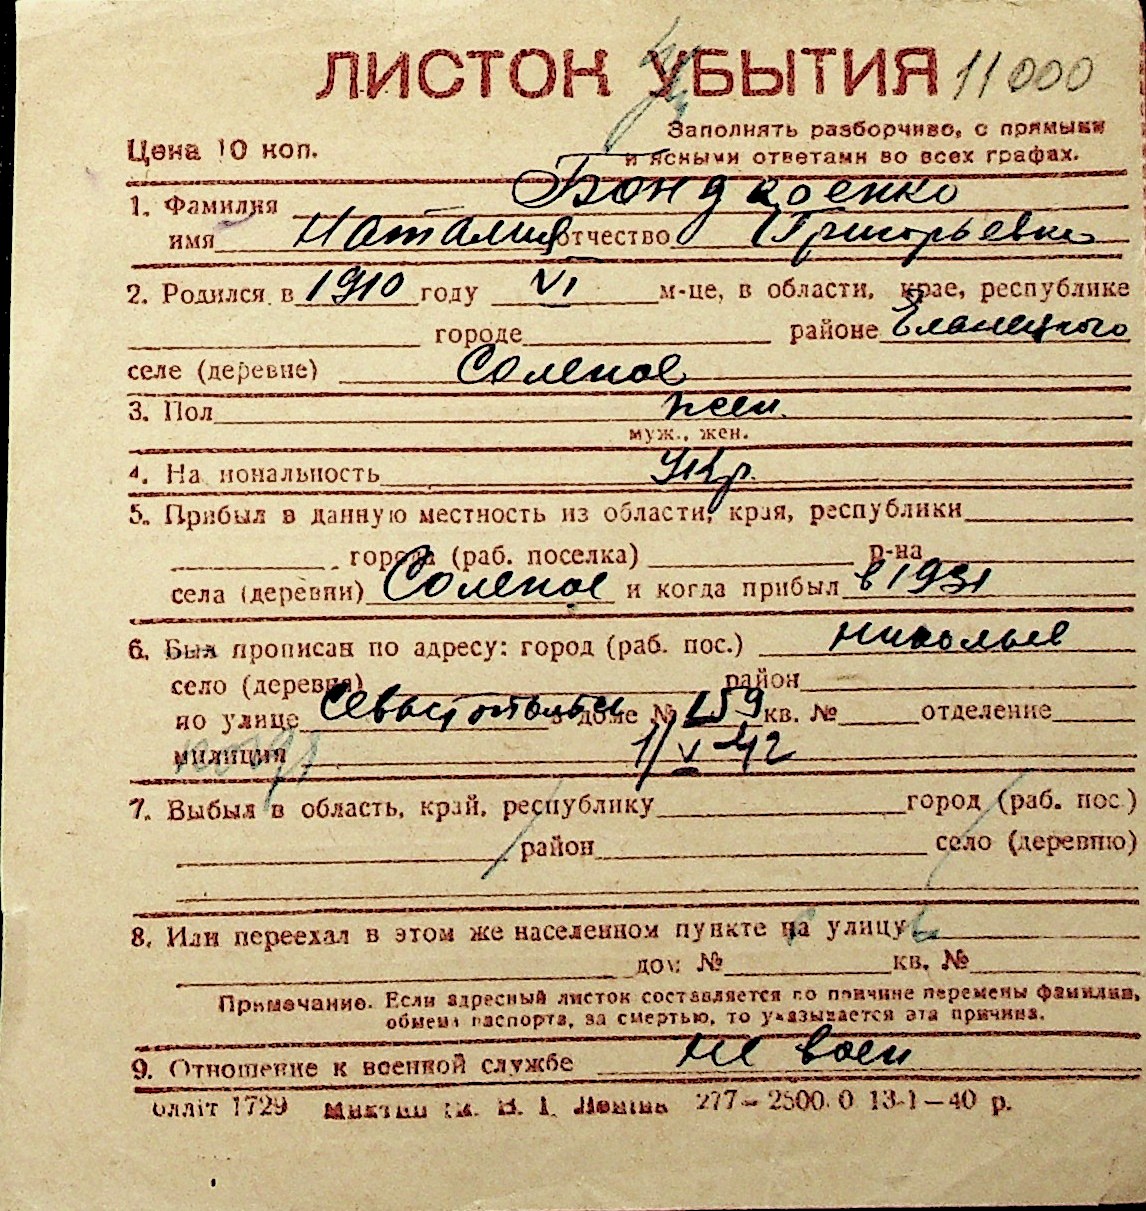 ЛИСТОК УБЫТИЯ 11000
Цена 10 коп.
Заполнять разборчиво, с прямыми
и ясными ответами во всех графах.
1. Фамилия Бондаренко
имя Наталия отчество Григорьевна
2. Родился в 1910 году VI м-це, в области, крае, республике
городе районе Еланецкого
селе (деревне) Соленое
3. Пол жен.
муж., жен.
4. Национальность Укр.
5. Прибыл в данную местность из области, края, республики
города (раб. поселка) р-на
села (деревни) Соленое и когда прибыл в 1931
6. Был прописан по адресу: город (раб. пос.) Николаев
село (деревня) район
по улице в доме № 159 кв. № отделение
милиция 1/V 42
7. Выбыл в область, край, республику город (раб. пос.)
район село (деревню)
8. Или переехал в этом же населенном пункте на улицу
дом № кв. №
Примечание. Если адресный листок составляется по причине перемены фамилии,
обмена паспорта, за смертью, то указывается эта причина.
9. Отношение к военной службе не воен
олліт 1729 277—2500.0 13-1—40 р.